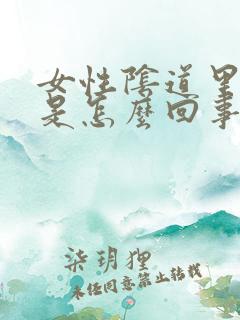 女性陰道里
是怎麼回事
柒玥狸
未经同意禁止转载